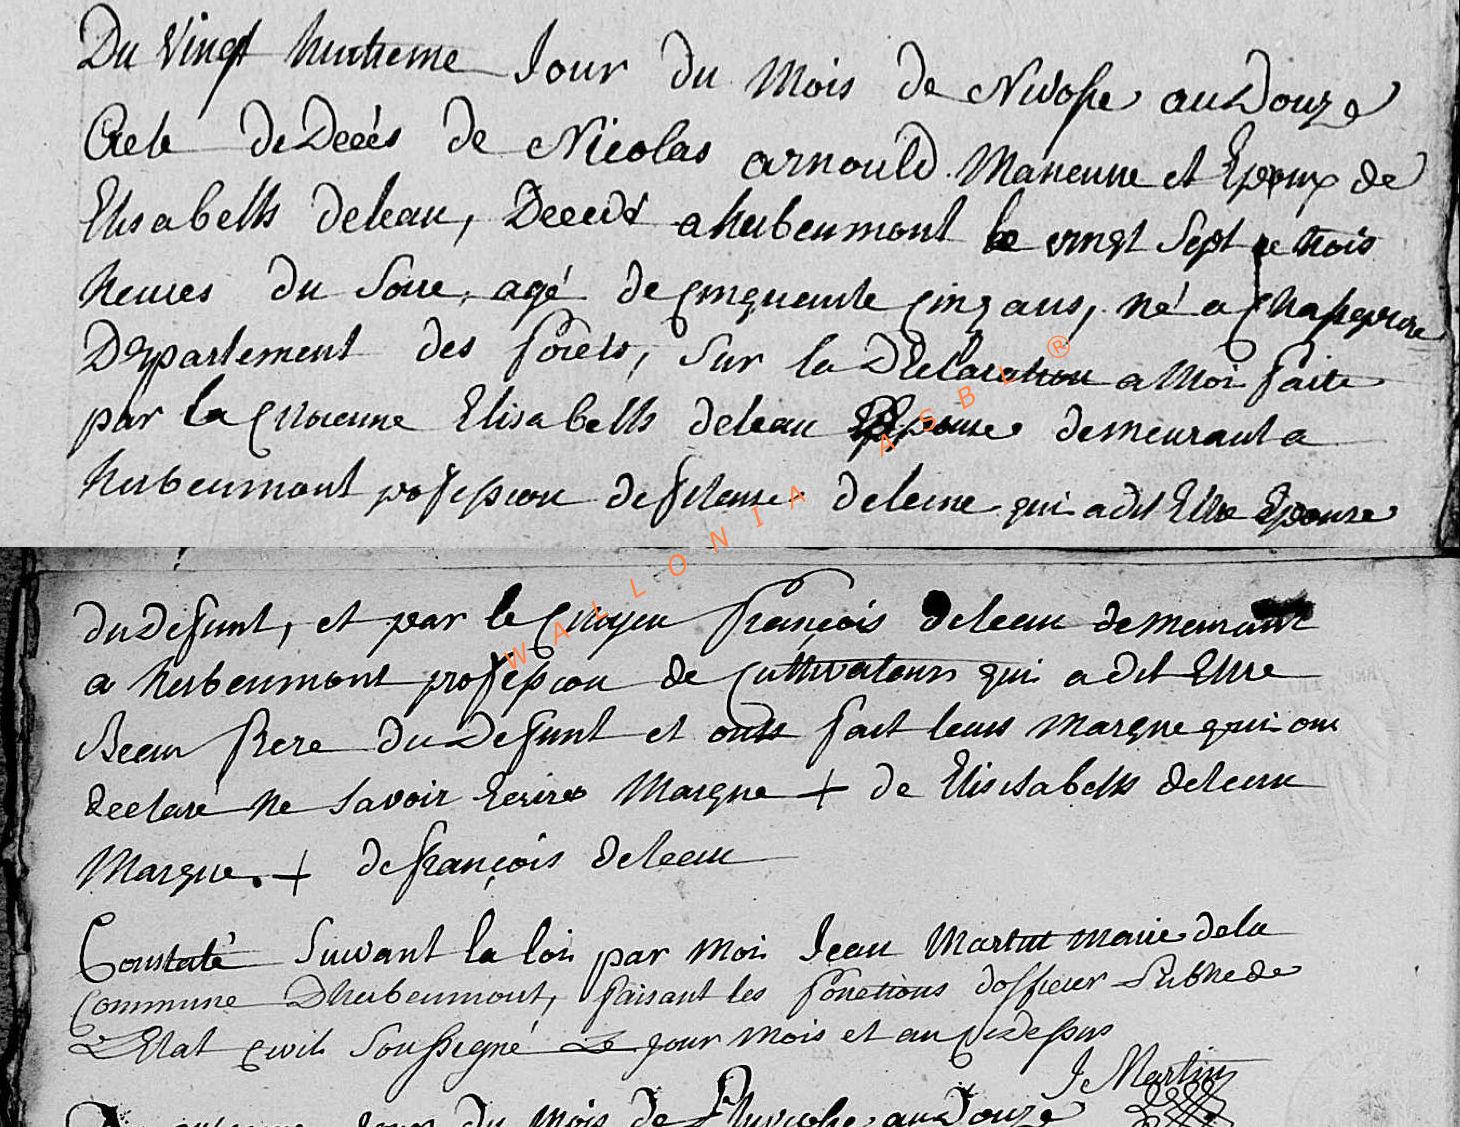 Du vingt huitieme Jour du Mois de Nivose an Douze
Acte de Décés de Nicolas arnould Maneuvre et Epoux de
Elisabeth deleau, Décedé a herbeumont le vingt Sept a trois
heures du Soire, agé de cinquante cinq ans, né a
Département des forets, Sur la Déclaration a Moi faite
par la Citoienne Elisabeth deleau Epouse demeurant a
herbeumont profession de fileuse de leine qui a dit Etre Epouse
du défunt, et par le Citoyen françois deleau demeurant
a herbeumont profession de Cultivateur qui a dit Etre
Beau frere du Défunt et onts fait leurs Marque qui ont
declaré ne Savoir Ecrire Marque + de Elisesabeth deleau
Marque. + de françois deleau
Constaté Suivant la loi par Moi Jean Martin maire de la
Commune Dherbeumont, faisant les fonctions d'officier Public de
L'Etat Civil Soussigné Le jour Mois et an Cidessus
J Martin
jour du Mois de Pluviose an Douze
WALLONIA ASBL ®